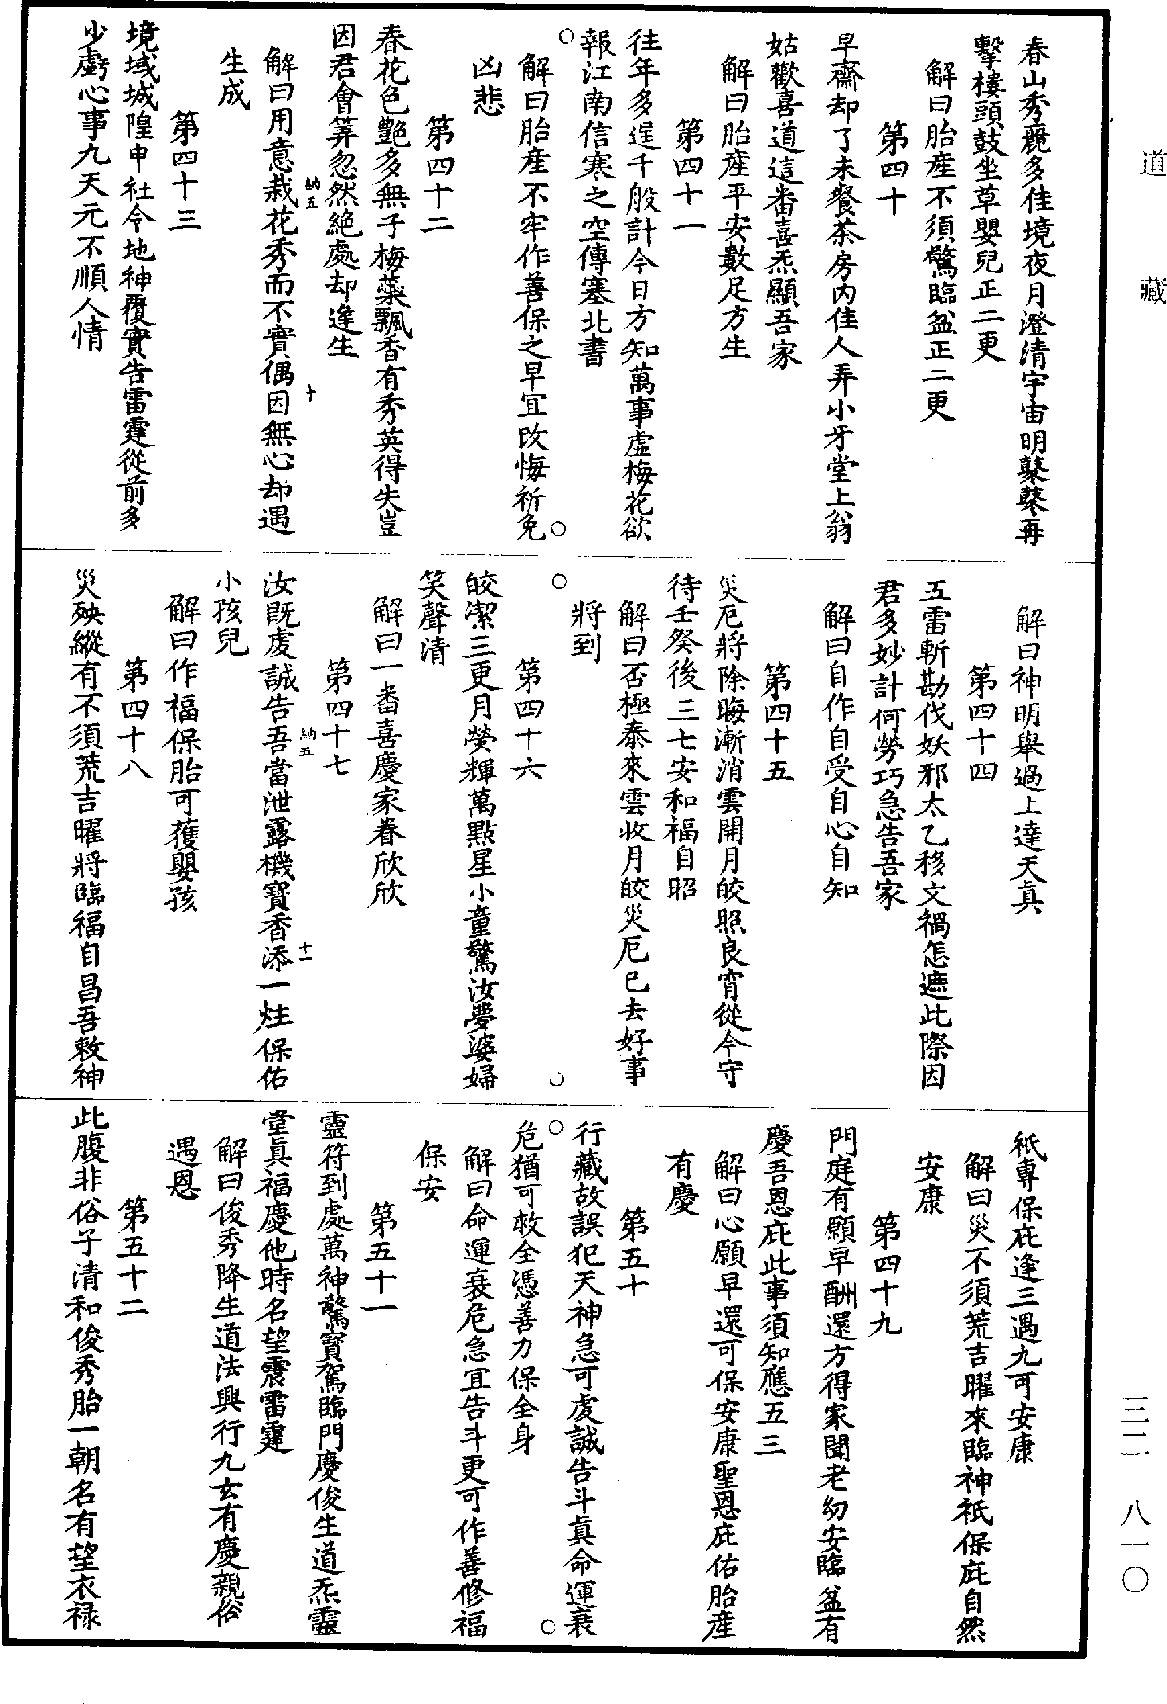 道藏
春山秀麗多佳境夜月澄清宇宙明鼕鼕再
擊樓頭鼓坐草嬰兒正二更
解曰胎産不須驚臨盆正二更
第四十
早齋却了未飡茶房内佳人弄小牙堂上翁
姑歡喜道這番喜炁顯吾家
解曰胎産平安數足方生
第四十一
往年多逞千般計今日方知萬事虛梅花欲
報江南信寒之空傳塞北書
解曰胎産不牢作善保之早宜改悔祈免
凶悲
第四十二
春花色艷多無子梅蘂飄香有秀英得失豈
因君會筭忽然絶處却逢生
解曰用意栽花秀而不實偶因無心却遇
生成
納五
十
第四十三
境域城隍申社令地神覆實告雷霆從前多
少虧心事九天元不順人情
解曰神明舉過上達天真
第四十四
五雷斬勘伐妖邪太乙移文禍怎遮此際因
君多妙計何勞巧急告吾家
解曰自作自受自心自知
第四十五
災厄將除晦漸消雲開月皎照良宵從今守
待壬癸後三七安和福自昭
解曰否極泰來雲收月皎災厄已去好事
將到
第四十六
皎潔三更月瑩輝萬點星小童驚汝夢婆婦
笑聲清
解曰一番喜慶家眷欣欣
第四十七
汝既虔誠告吾當泄露機寶香添一炷保佑
小孩兒
納五
十一
解曰作福保胎可獲嬰孩
第四十八
災殃縱有不須荒吉曜將臨福自昌吾敕神
祇專保庇逢三遇九可安康
解曰災不須荒吉曜來臨神祇保庇自然
安康
第四十九
門庭有願早酬還方得家閫老幼安臨盆有
慶吾恩庇此事須知應五三
解曰心願早還可保安康聖恩庇佑胎産
有慶
第五十
行藏故誤犯天神急可虔誠告斗真命運衰
危猶可救全憑善力保全身
解曰命運衰危急宜告斗更可作善修福
保安
第五十一
靈符到處萬神驚寳駕臨門慶俊生道炁靈
堂真福慶他時名望震雷霆
解曰俊秀降生道法興行九玄有慶親俗
遇恩
第五十二
此腹非俗子清和俊秀胎一朝名有望衣禄
三二 八一〇